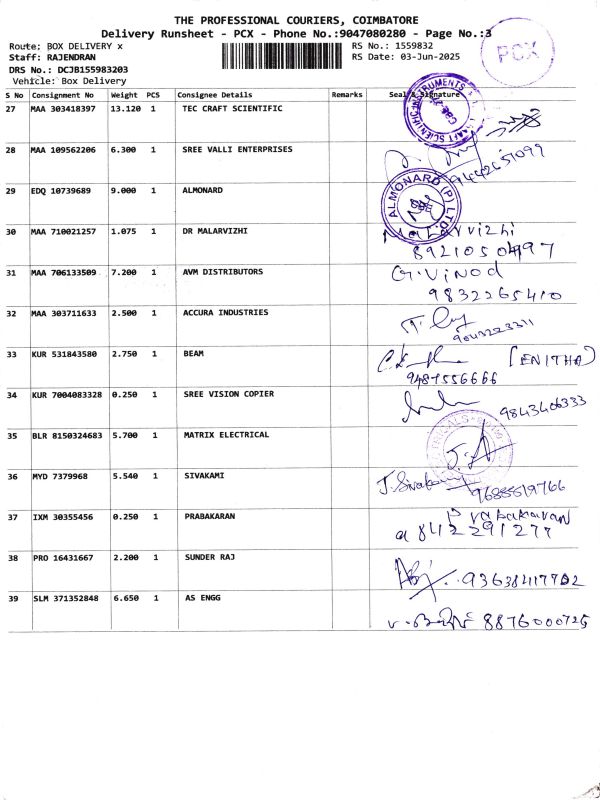 THE PROFESSIONAL COURIERS, COIMBATORE
Delivery Runsheet - PCX - Phone No.:9047080280 - Page No.:3
PCX
Route: BOX DELIVERY x
RS No.: 1559832
Staff: RAJENDRAN
RS Date: 03-Jun-2025
DRS No.: DCJB155983203
Vehicle: Box Delivery
S No Consignment No Weight PCS Consignee Details Remarks Seal & Signature
27 MAA 303418397 13.120 1 TEC CRAFT SCIENTIFIC
28 MAA 109562206 6.300 1 SREE VALLI ENTERPRISES
9442651099
29 EDQ 10739689 9.000 1 ALMONARD
ALMONARD (P) LTD.
30 MAA 710021257 1.075 1 DR MALARVIZHI
Malarvizhi
31 MAA 706133509 7.200 1 AVM DISTRIBUTORS
G.Vinod
9832265410
32 MAA 303711633 2.500 1 ACCURA INDUSTRIES
33 KUR 531843580 2.750 1 BEAM
(ENITHA)
9487556666
34 KUR 7004083328 0.250 1 SREE VISION COPIER
9843406333
35 BLR 8150324683 5.700 1 MATRIX ELECTRICAL
36 MYD 7379968 5.540 1 SIVAKAMI
J.Sivakami
37 IXM 30355456 0.250 1 PRABAKARAN
Prabakaran
9842291277
38 PRO 16431667 2.200 1 SUNDER RAJ
39 SLM 371352848 6.650 1 AS ENGG
8876000725